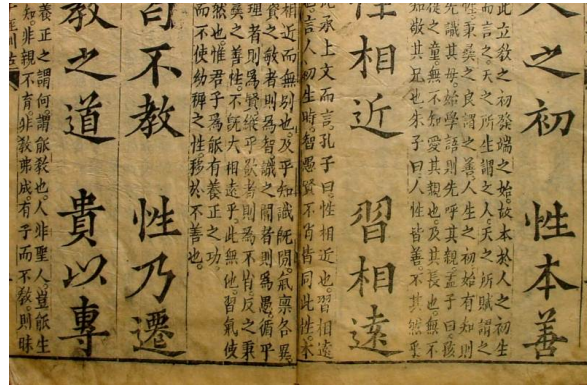 人之初　性本善
此立教之初發端之始。故本於人之初生
而言之。天之所生謂之人。天之所賦謂之
性。秉彝之良謂之善。人生之初始有知則
先識其母。始學語則先呼其親。孟子曰孩
提之童。無不知愛其親也。及其長也。無不
知敬其兄也。朱子曰人性皆善。不其然乎
性相近　習相遠
此承上文而言。孔子曰性相近也。習相遠
也。言人初生時。智愚賢不肖皆同此性。本
相近而無別也。及乎知識既開。氣稟各異。
資之敏者則為智。識之闇者則為愚。循乎
理者則為賢。縱乎欲者則為不肖。反之秉
彝之善性。不既大相遠乎。此無他。習氣使
然也。惟君子為能有養正之功。
而不使幼穉之性。移於不善也。
苟不教　性乃遷
教之道　貴以專
養正之謂何。謂能教也。人非聖人。豈能生
知。非親不育。非教弗成。有子而不教。則昧